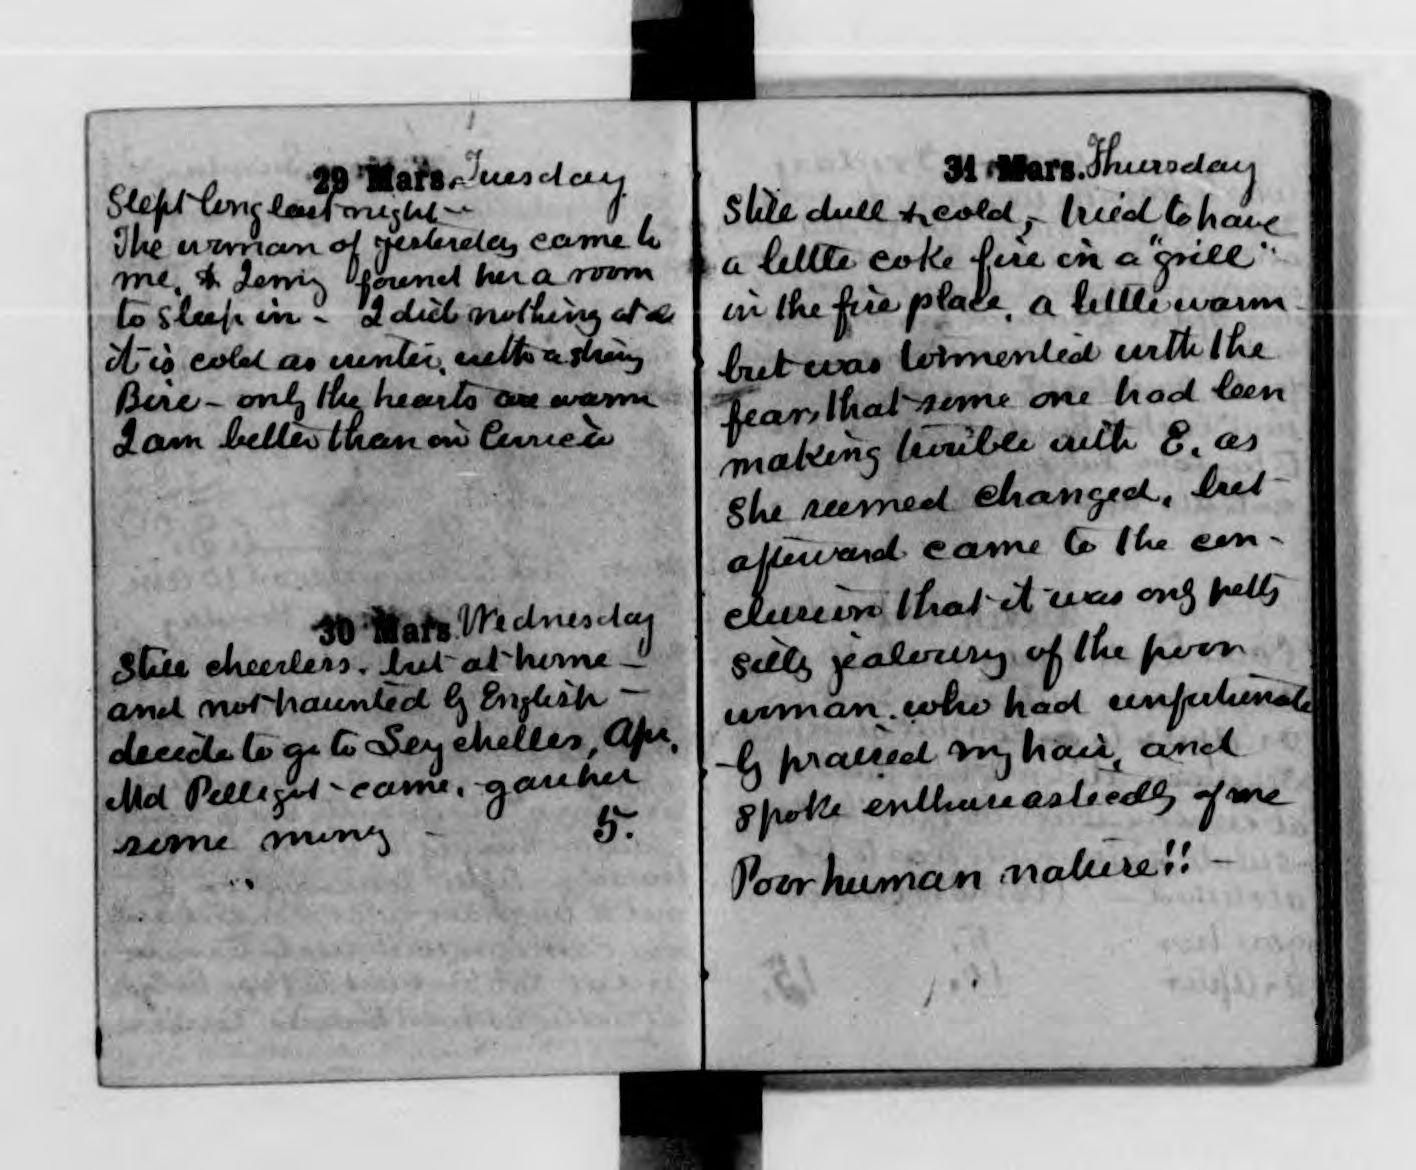 29 Mars. Tuesday
Slept long last night -
The woman of yesterday came to
me, & Jenny found her a room
to sleep in - I did nothing at a
it is cold as winter, with a strong
Bise - only the hearts are warm
I am better than in
30 Mars Wednesday
Still cheerless. but at home -
and not haunted by English -
decide to go to Seychelles, Apr.
Md Pelligot came, gave her
some money - 5.
31 Mars. Thursday
Still dull & cold, - tried to have
a little coke fire in a "grill"
in the fire place, a little warm
but was tormented with the
fear, that some one had been
making trouble with E. as
she seemed changed, but
afterward came to the con-
clusion that it was only petty
silly jealousy of the poor
woman. who had unfortunate
-ly praised my hair, and
spoke enthusiastically of me
Poor human nature!! -